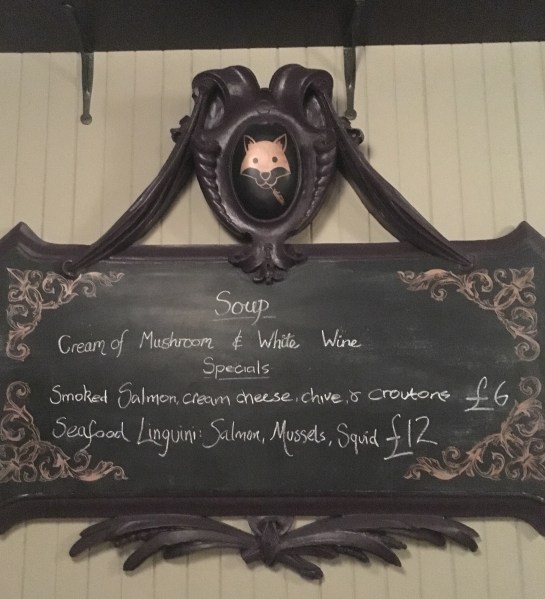 Soup
Cream of Mushroom & White Wine
Specials
Smoked Salmon, cream cheese, chive, & croutons £6
Seafood Linguini: Salmon, Mussels, Squid £12